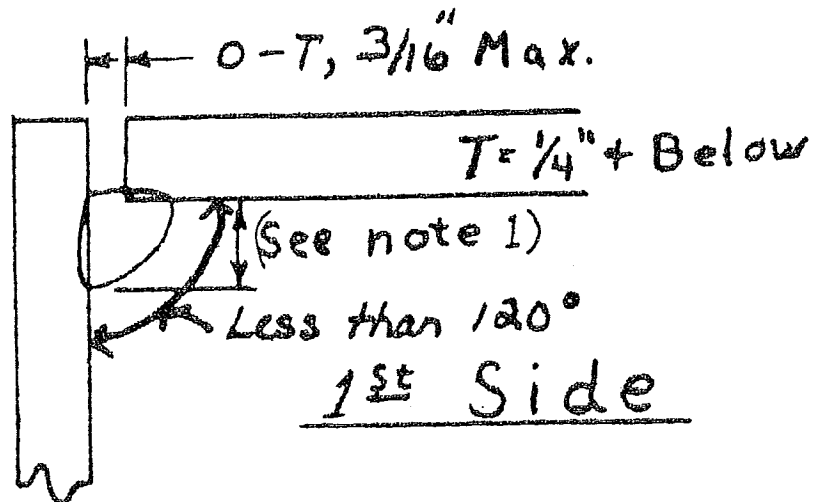 O-T, 3/16" Max.
T=1/4"+ Below
(See note 1)
Less than 120°
1st Side